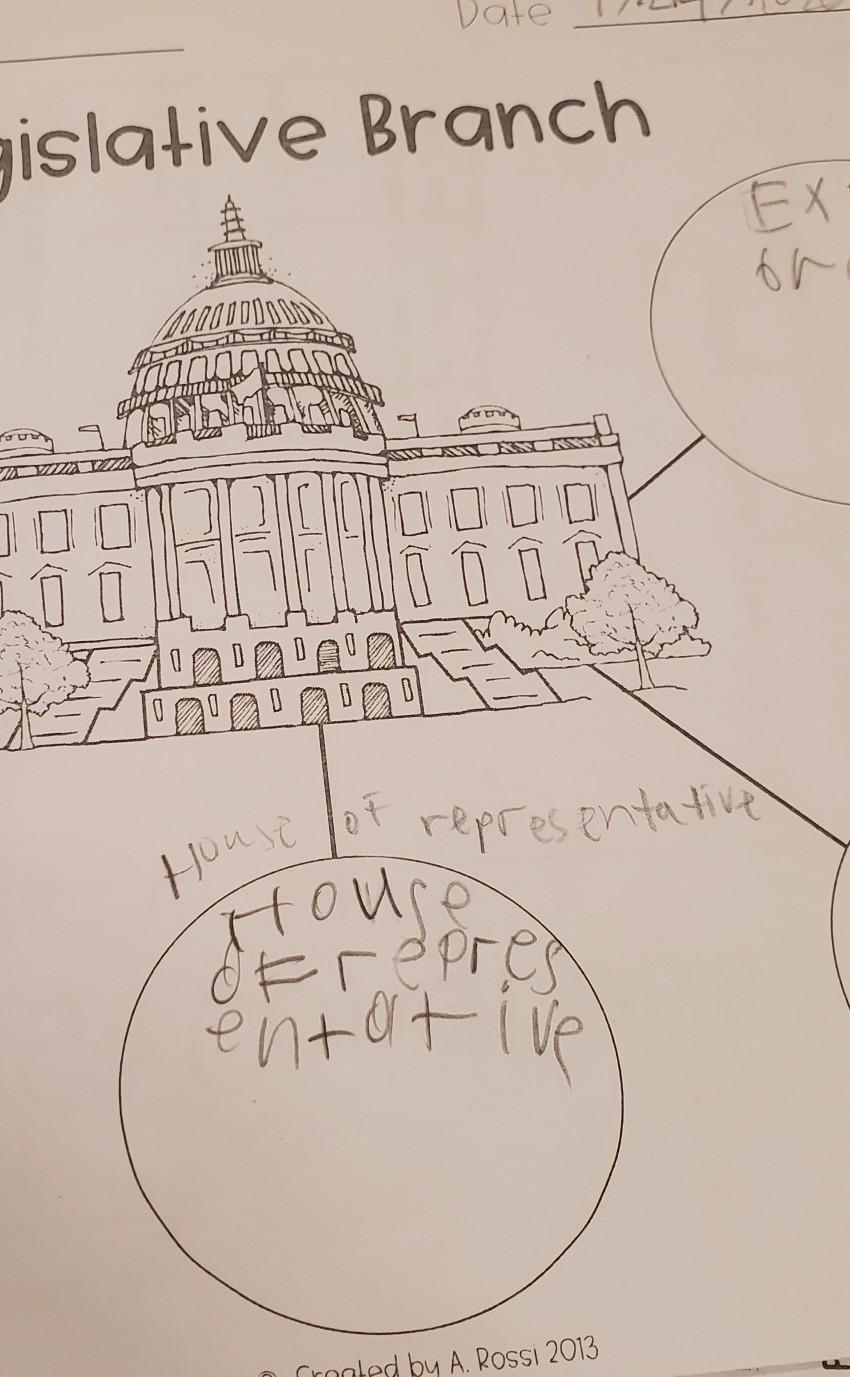 Date
gislative Branch
Ex
br
House of representative
House
of repres
entative
Created by A. Rossi 2013